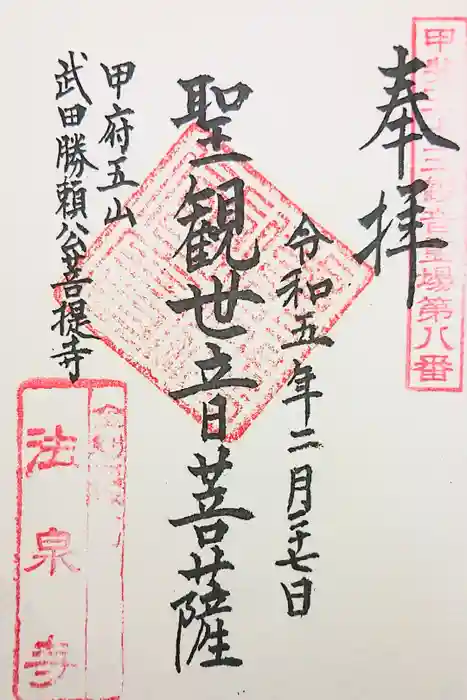 奉拝
甲斐三十三観音霊場第八番
令和五年二月二十七日
聖観世音菩薩
甲府五山
武田勝頼公菩提寺
法泉寺